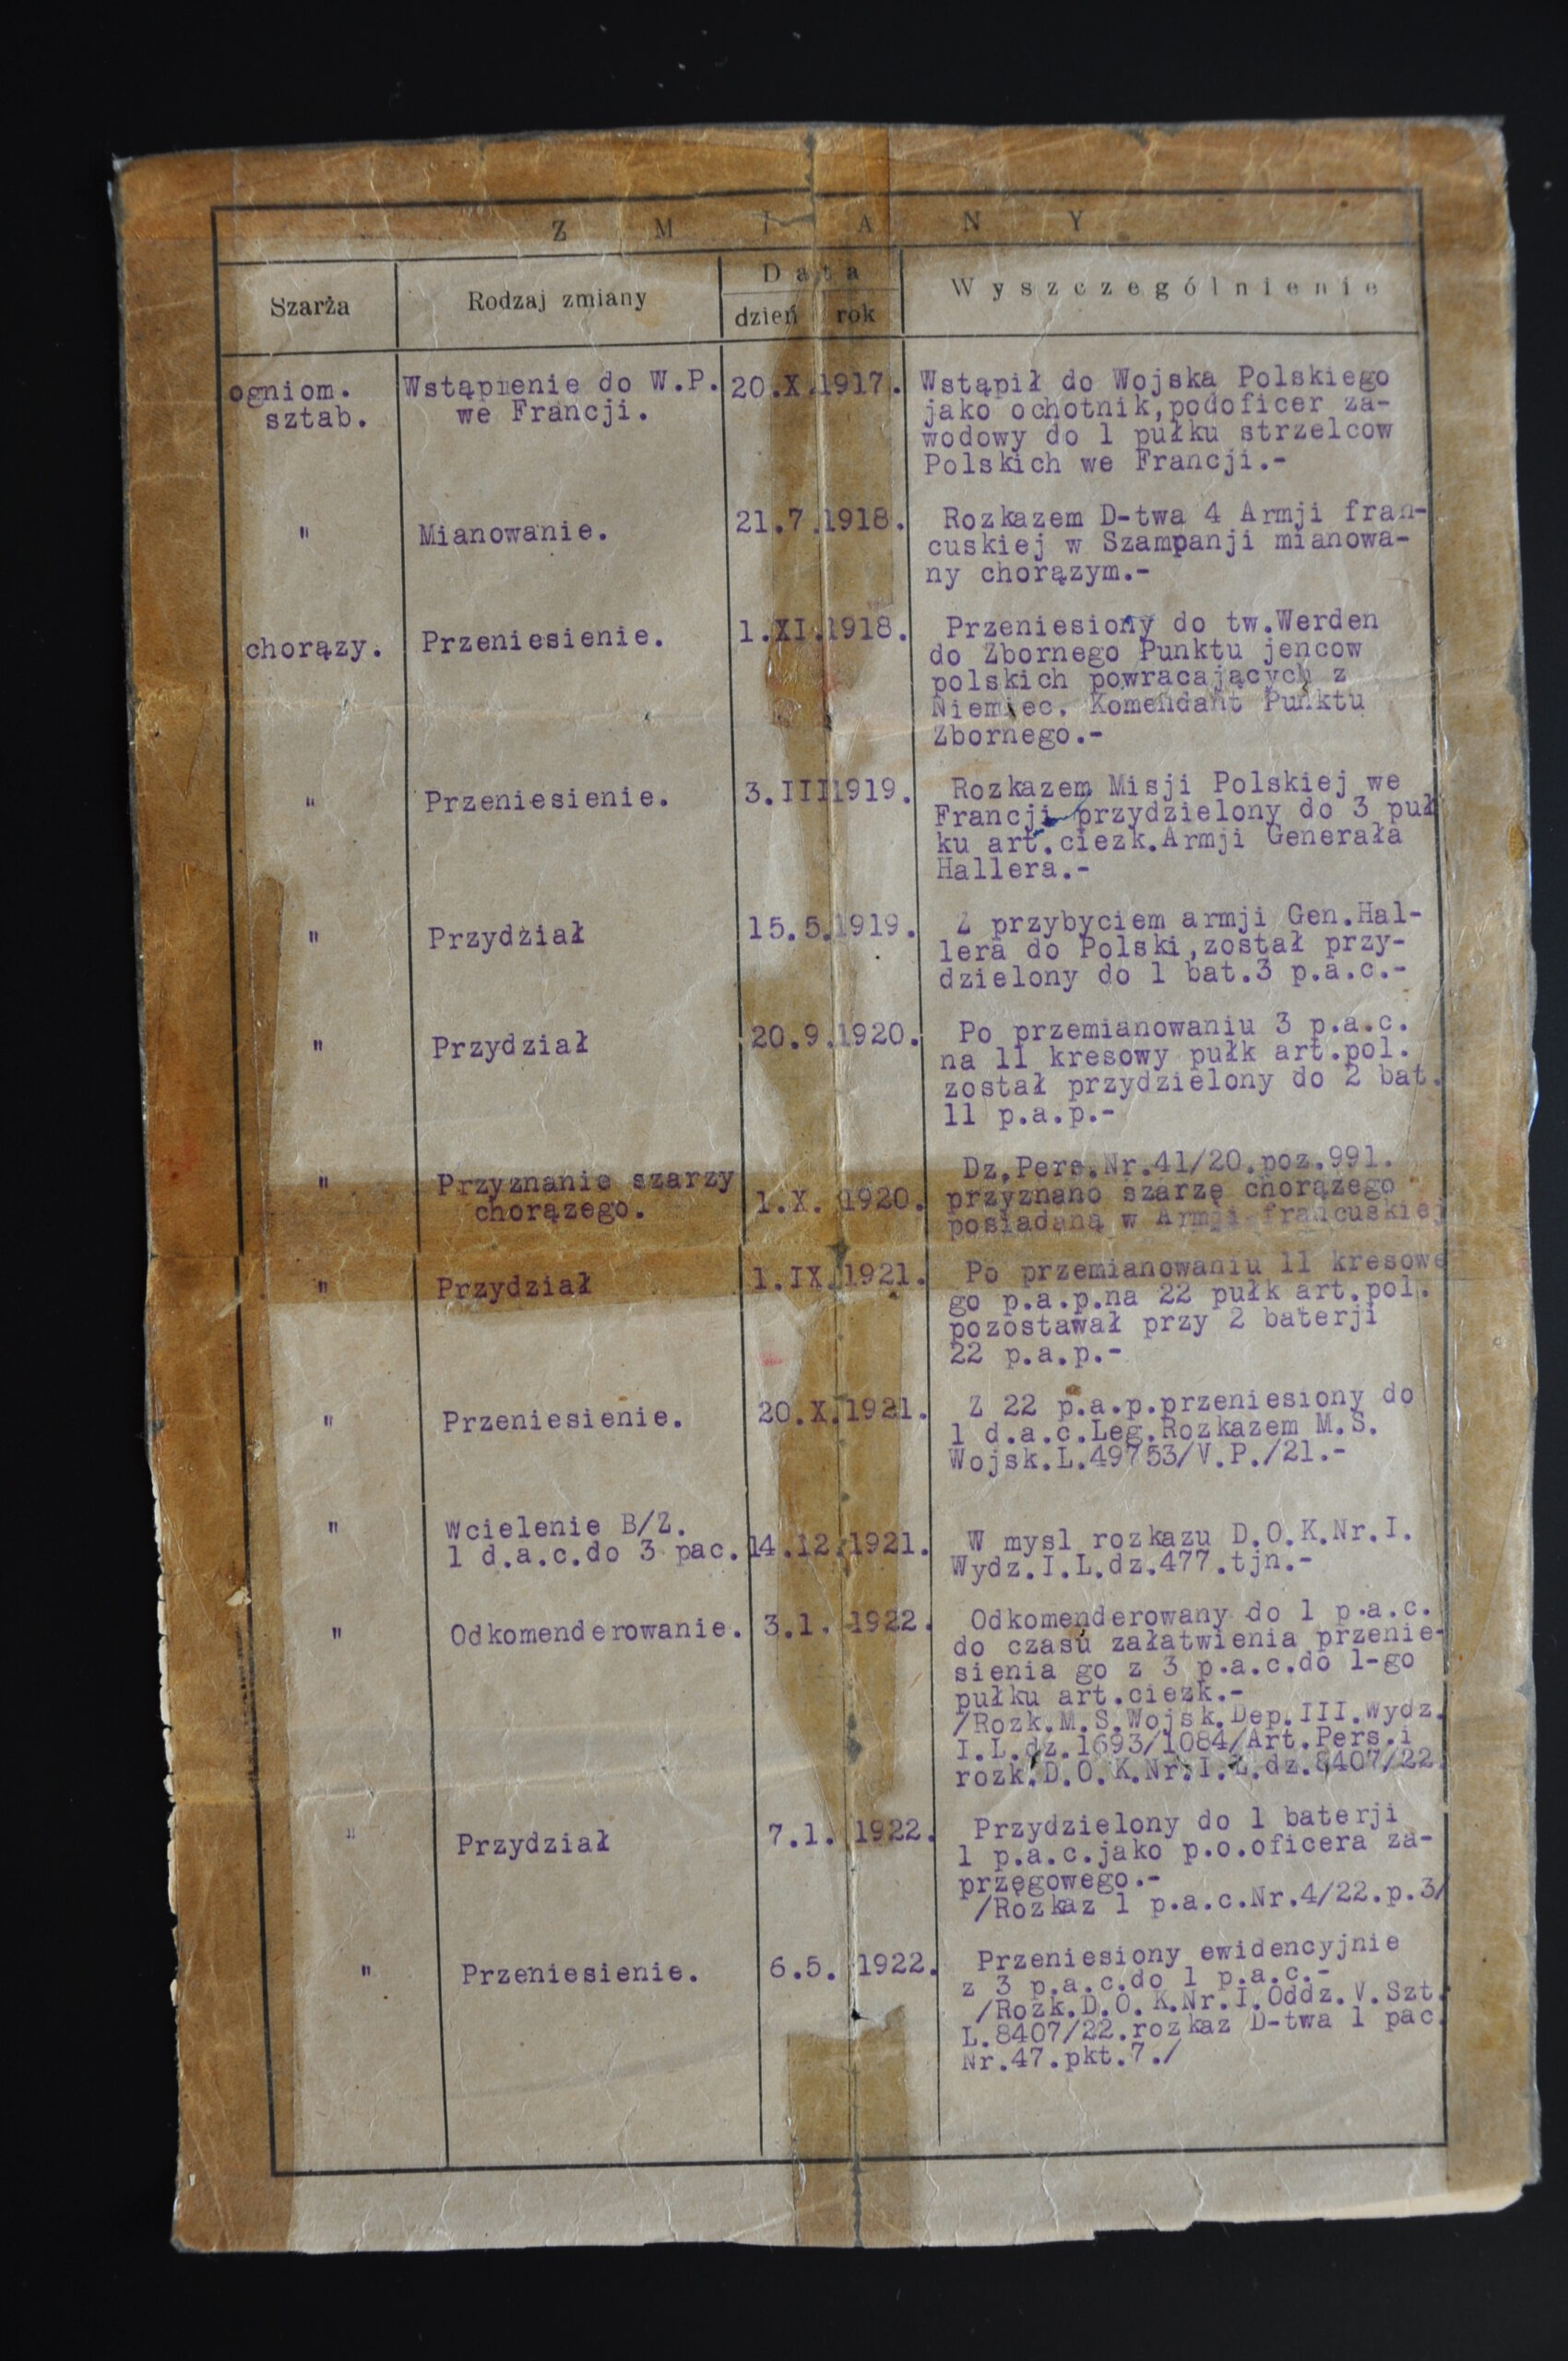 Z M I A N Y
Szarża Rodzaj zmiany Data Wyszczególnienie
dzień rok
ogniom. Wstąpienie do W.P. 20.X.1917. Wstąpił do Wojska Polskiego
sztab. we Francji. jako ochotnik,podoficer za-
wodowy do 1 pułku strzelcow
Polskich we Francji.-
" Mianowanie. 21.7.1918. Rozkazem D-twa 4 Armji fran-
cuskiej w Szampanji mianowa-
ny chorązym.-
chorązy. Przeniesienie. 1.XI.1918. Przeniesiony do tw.Werden
do Zbornego Punktu jencow
polskich powracających z
Niemiec. Komendant Punktu
Zbornego.-
" Przeniesienie. 3.III1919. Rozkazem Misji Polskiej we
Francji przydzielony do 3 puł
ku art.ciezk.Armji Generała
Hallera.-
" Przydział 15.5.1919. Z przybyciem armji Gen.Hal-
lera do Polski,został przy-
dzielony do 1 bat.3 p.a.c.-
" Przydział 20.9.1920. Po przemianowaniu 3 p.a.c.
na 11 kresowy pułk art.pol.
został przydzielony do 2 bat.
11 p.a.p.-
" Przyznanie szarzy 1.X. 1920. Dz.Pers.Nr.41/20.poz.991.
chorązego. przyznano szarzę chorązego
posiadaną w Armji francuskiej
" Przydział 1.IX.1921. Po przemianowaniu 11 kresowe
go p.a.p.na 22 pułk art.pol.
pozostawał przy 2 baterji
22 p.a.p.-
" Przeniesienie. 20.X.1921. Z 22 p.a.p.przeniesiony do
1 d.a.c.Leg.Rozkazem M.S.
Wojsk.L.49753/V.P./21.-
" Wcielenie B/Z.
1 d.a.c.do 3 pac. 14.12.1921. W mysl rozkazu D.O.K.Nr.I.
Wydz.I.L.dz.477.tjn.-
" Odkomenderowanie. 3.1. 1922. Odkomenderowany do 1 p.a.c.
do czasu załatwienia przenie-
sienia go z 3 p.a.c.do 1-go
pułku art.ciezk.-
/Rozk.M.S.Wojsk.Dep.III.Wydz.
I.L.dz.1693/1084/Art.Pers.i
rozk.D.O.K.Nr.I.L.dz.8407/22.
" Przydział 7.1. 1922. Przydzielony do 1 baterji
1 p.a.c.jako p.o.oficera za-
przęgowego.-
/Rozkaz 1 p.a.c.Nr.4/22.p.3/
" Przeniesienie. 6.5. 1922. Przeniesiony ewidencyjnie
z 3 p.a.c.do 1 p.a.c.-
/Rozk.D.O.K.Nr.I.Oddz.V.Szt.
L.8407/22.rozkaz D-twa 1 pac.
Nr.47.pkt.7./